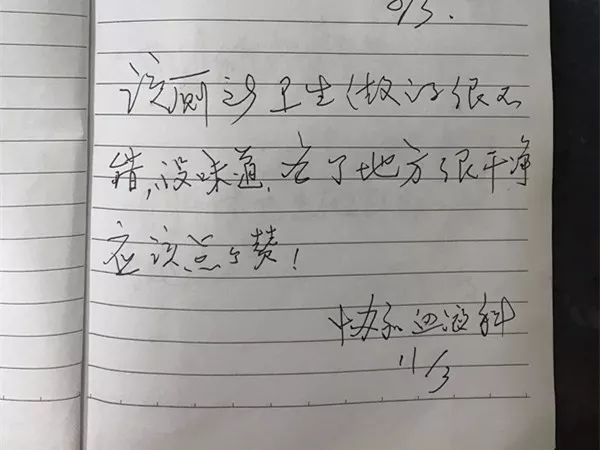 该厕所卫生做的很不
错,没味道,各个地方很干净
应该点个赞!
协和血液科
11/3